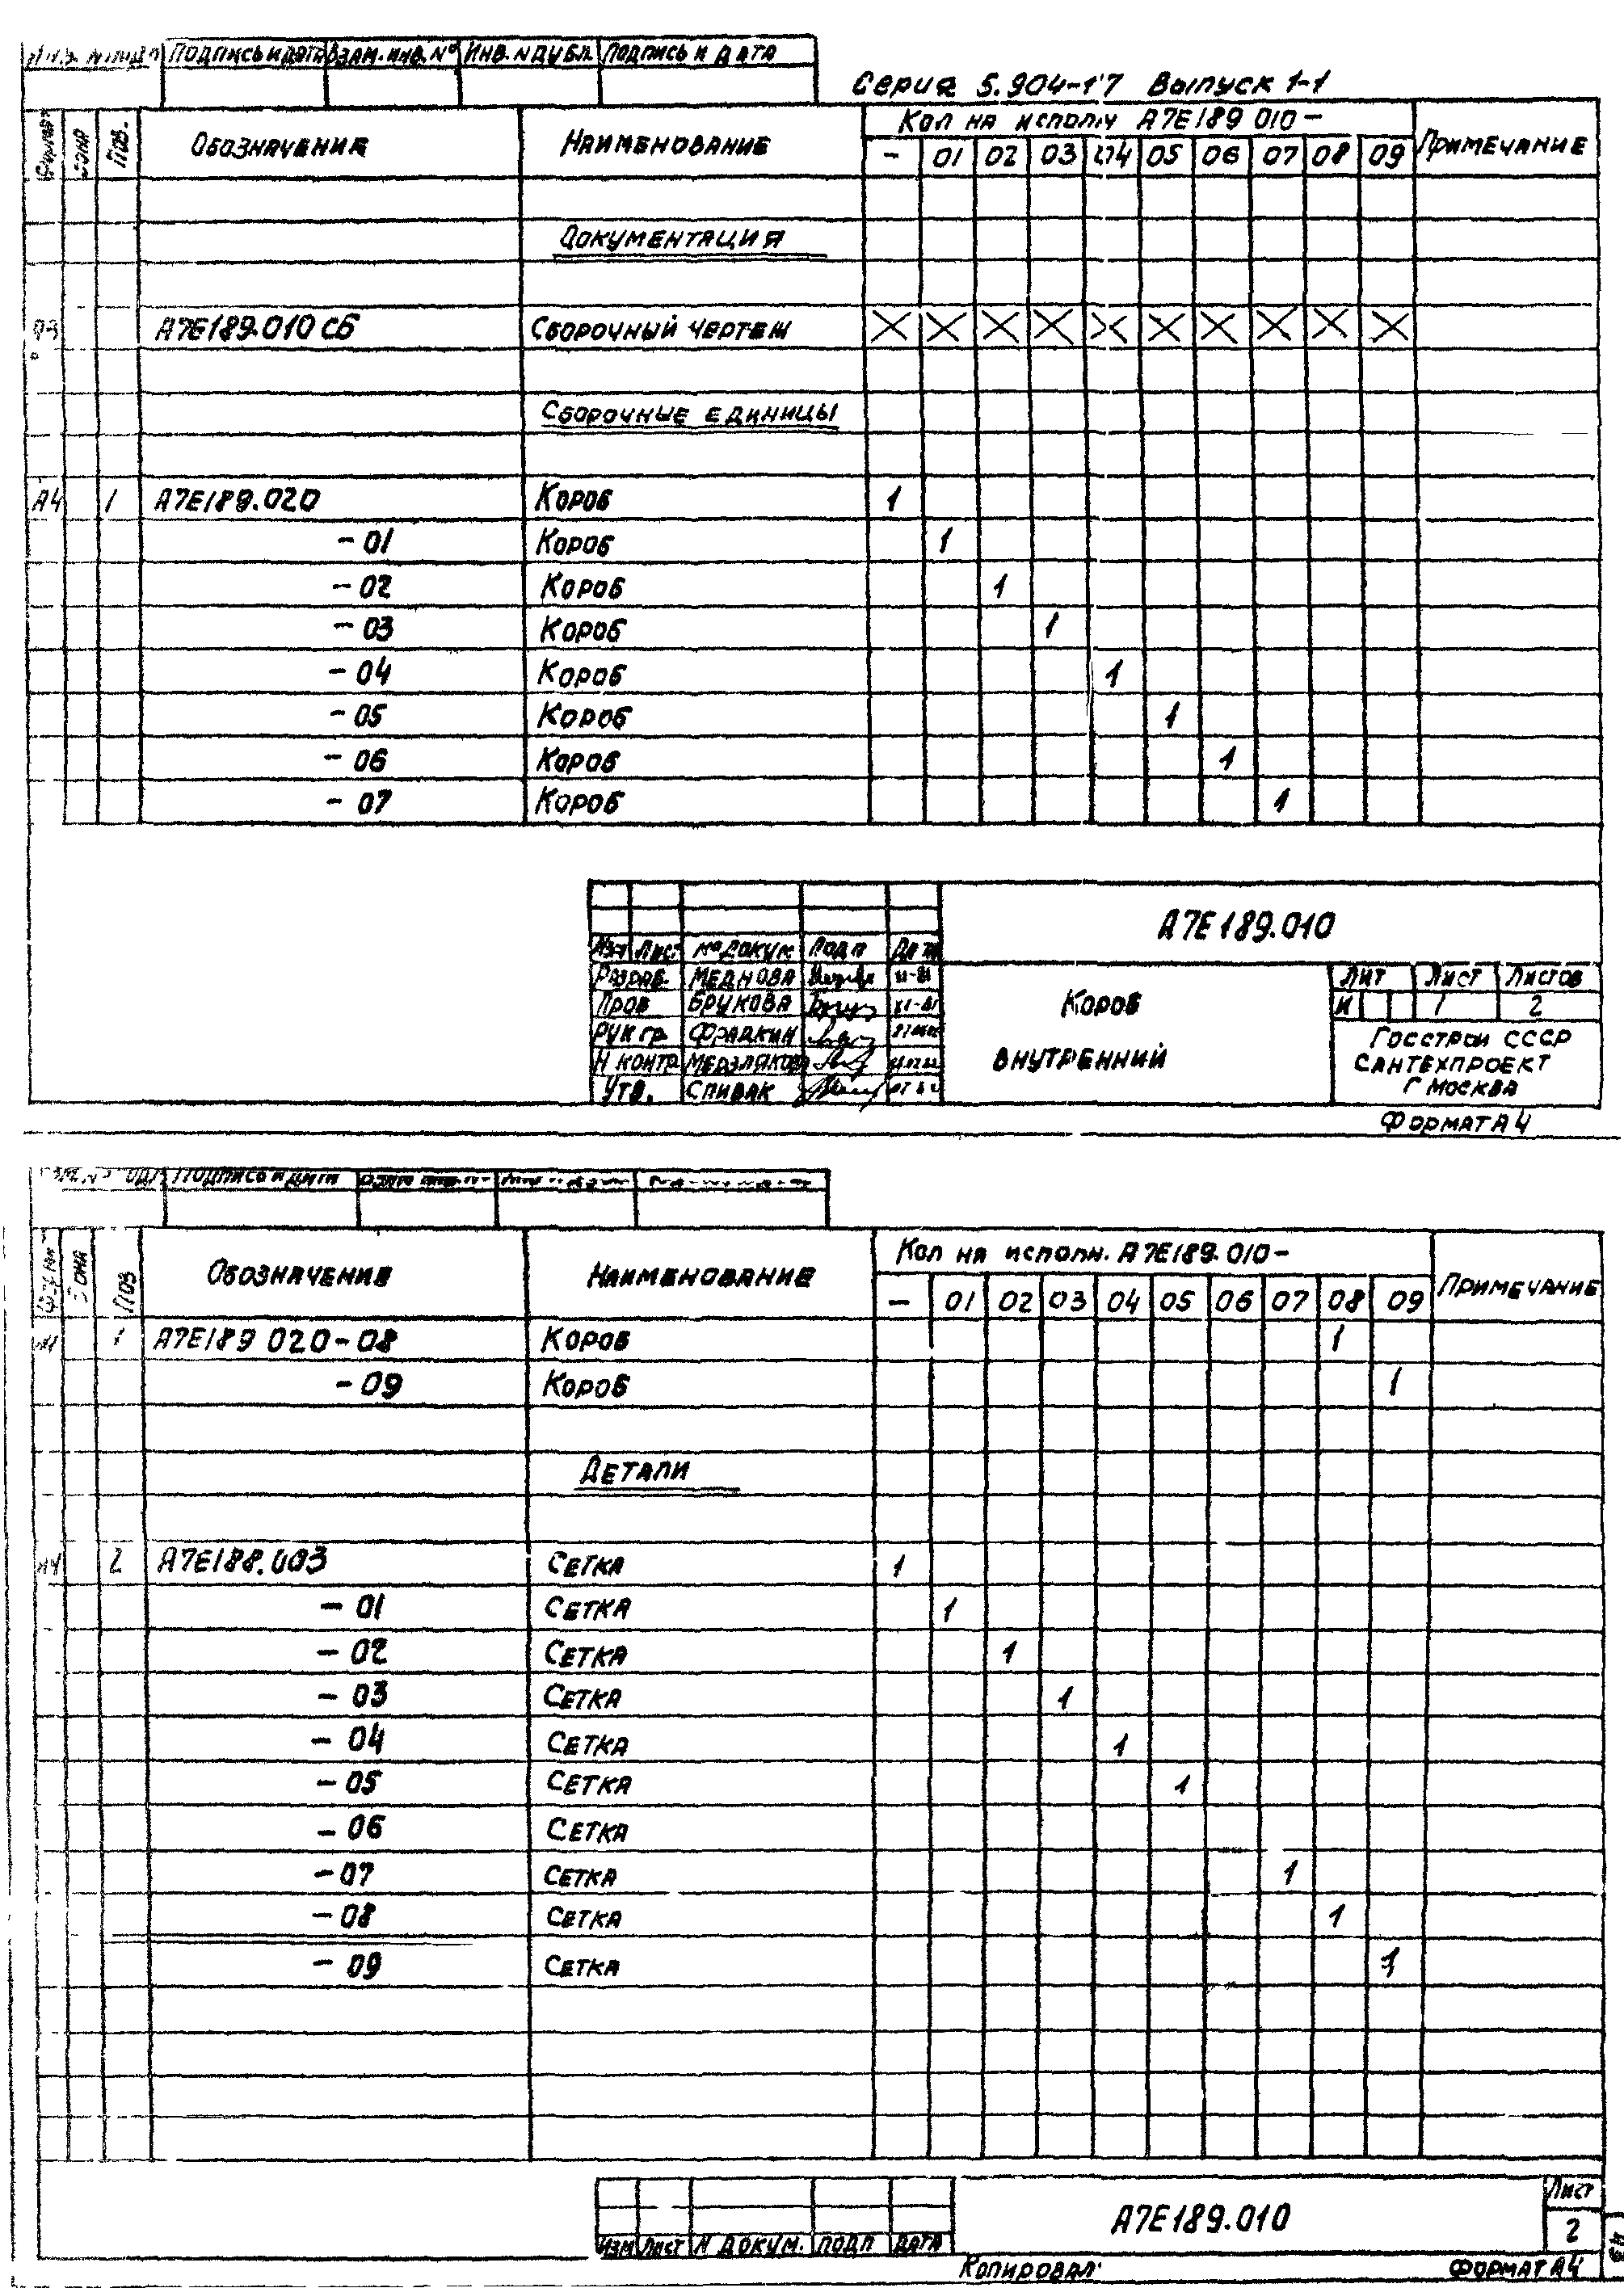 Подпись и дата Взам. инв. № Инв. № дубл. Подпись и дата
Серия 5.904-17 Выпуск 1-1
Формат Зона Поз. Обозначение Наименование Кол на исполн А7Е189 010- Примечание
- 01 02 03 04 05 06 07 08 09
Документация
А3 А7Е189.010 СБ Сборочный чертеж X X X X X X X X X X
Сборочные единицы
А4 1 А7Е189.020 Короб 1
- 01 Короб 1
- 02 Короб 1
- 03 Короб 1
- 04 Короб 1
- 05 Короб 1
- 06 Короб 1
- 07 Короб 1
А7Е189.010
Изм Лист № докум Подп Дата
Разраб. Меднова
Пров Брукова
Рук гр Фрадкин
Н контр Мерзлякова
Утв. Спивак
Короб
внутренний
Лит Лист Листов
И 1 2
Госстрой СССР
Сантехпроект
г Москва
Формат А4
Подпись и дата
Зона Поз Обозначение Наименование Кол на исполн. А7Е189.010- Примечание
- 01 02 03 04 05 06 07 08 09
1 А7Е189 020-08 Короб 1
-09 Короб 1
Детали
А4 2 А7Е188.003 Сетка 1
- 01 Сетка 1
- 02 Сетка 1
- 03 Сетка 1
- 04 Сетка 1
- 05 Сетка 1
- 06 Сетка
- 07 Сетка 1
- 08 Сетка 1
- 09 Сетка 1
Изм Лист № докум. Подп Дата
А7Е189.010
Лист
2
Копировал:
Формат А4